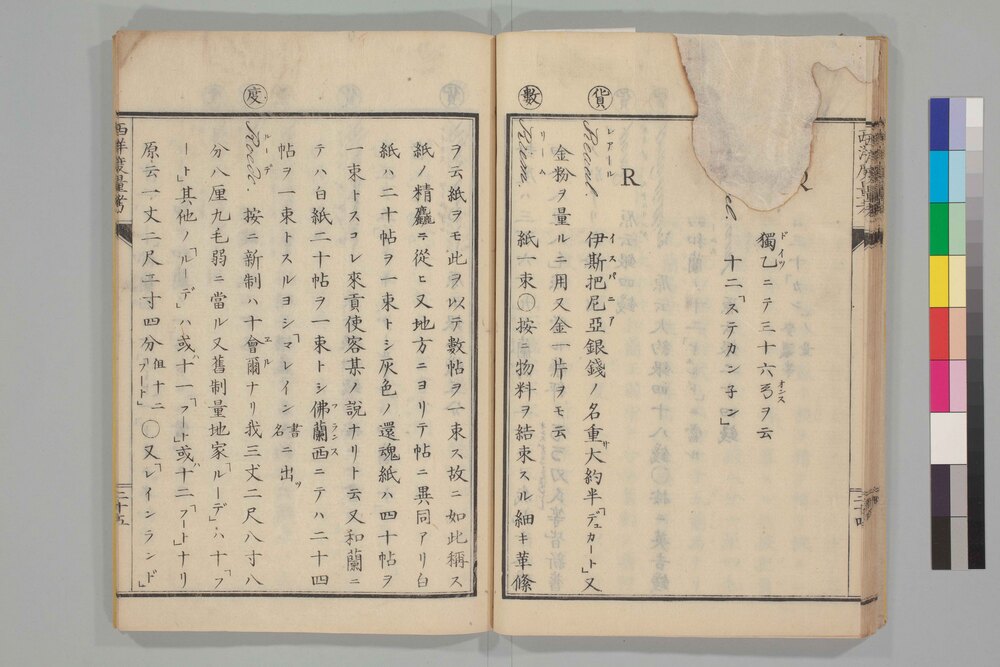 獨乙ニテ三十六弓ヲ云
ドイツ
オンス
十二「ステカン子ン」
R
貨
Reaal.
レアール
伊斯把尼亞銀錢ノ名重サ大約半「デュカート」又
イスパニア
金粉ヲ量ルニ用又金一片ヲモ云
數
Riem.
リーム
紙一束○按ニ物料ヲ結束スル細キ革絛
ヲ云紙ヲモ此ヲ以テ數帖ヲ一束ス故ニ如此稱ス
紙ノ精麤ニ從ヒ又地方ニヨリテ帖ニ異同アリ白
紙ハ二十帖ヲ一束トシ灰色ノ還魂紙ハ四十帖ヲ
一束トスコレ來貢使客某ノ說ナリト云又和蘭ニ
テハ白紙二十帖ヲ一束トシ佛蘭西ニテハ二十四
フランス
帖ヲ一束トスルヨシ「マレイン書名ニ出ツ
度
Roede.
ルーデ
按ニ新制ハ十會爾ナリ我三丈二尺八寸八
エル
分八厘九毛弱ニ當ル又舊制量地家「ルーデ」ハ十「フ
ート」其他ノ「ルーデ」ハ或ハ十一「フート」或ハ十二「フート」ナリ
原云一丈二尺三寸四分但十二「フート」○又「レインランド」
三十五